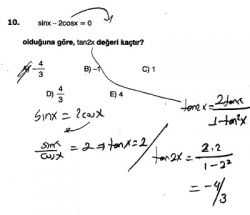 10. sinx – 2cosx = 0
olduğuna göre, tan2x değeri kaçtır?
A) -4/3 B) –1 C) 1
D) 4/3 E) 4
sinx = 2cosx
sinx/cosx = 2 ⇒ tanx = 2
tan2x = 2tanx/1-tan²x
tan2x = 2.2/1-2²
= -4/3